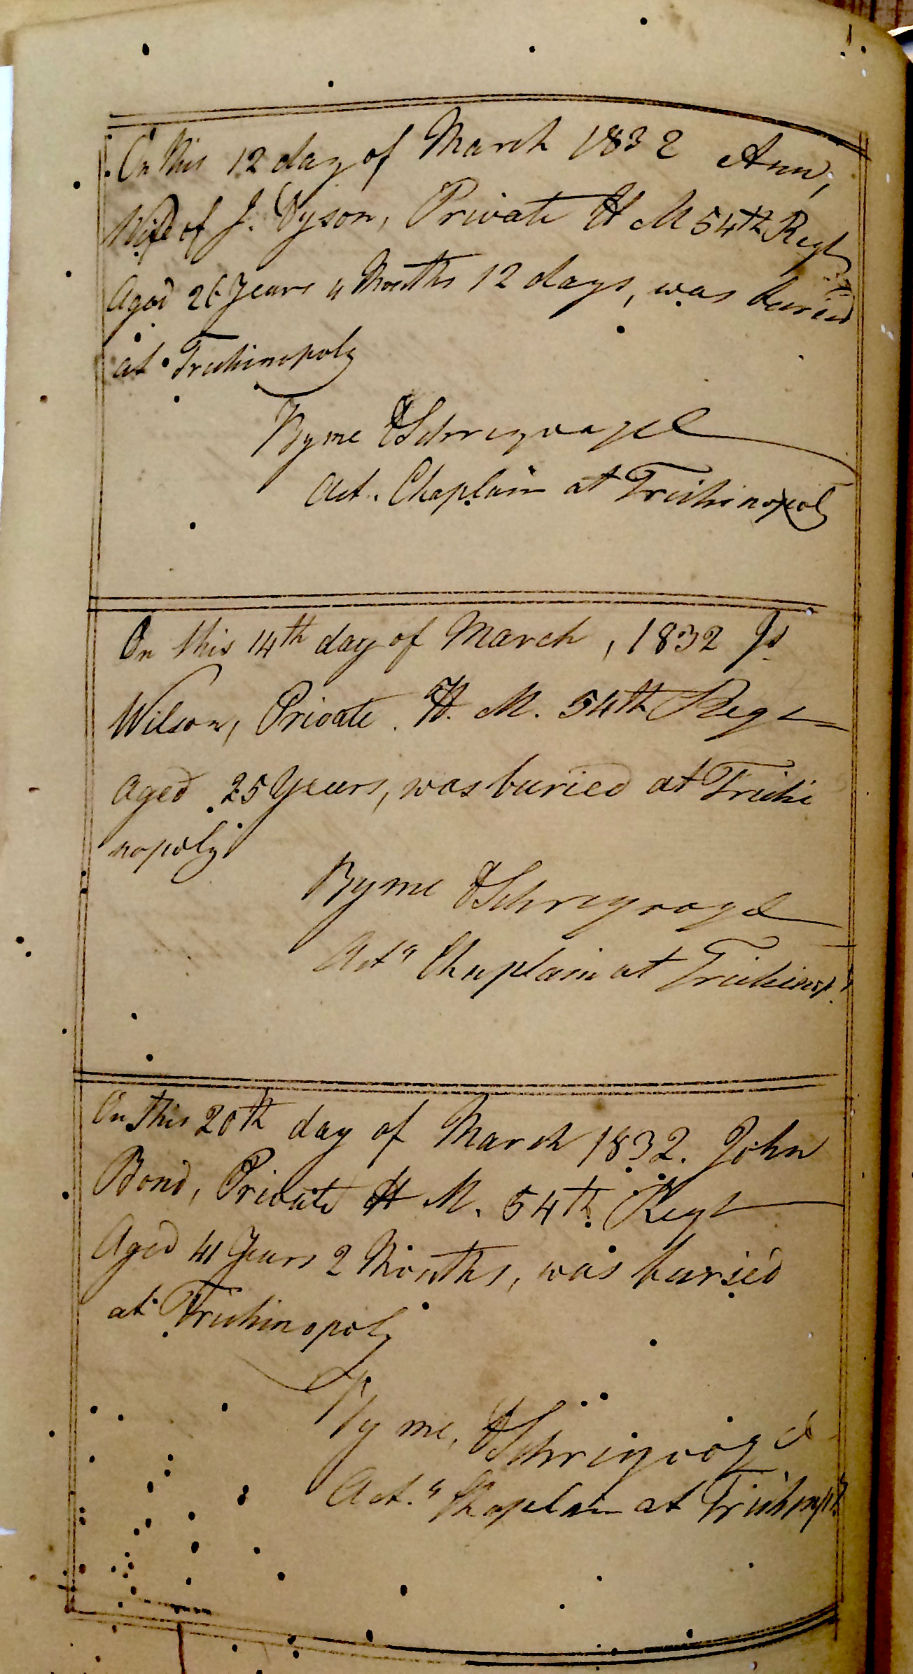 On this 12 day of March 1832 Ann,
Wife of J. Dyson, Private H M 54th Regt
Aged 26 Years 4 Months 12 days, was buried
at Trichinopoly
By me H Schreyvogel
Act. Chaplain at Trichinopoly
On this 14th day of March, 1832 Js
Wilson, Private H. M. 54th Regt
Aged 25 Years, was buried at Trichi
nopoly
By me H Schreyvogel
Act" Chaplain at Trichinop.
On this 20th day of March 1832. John
Bond, Private H M. 54th Regt
Aged 41 Years 2 Months, was buried
at Trichinopoly
By me, H Schreyvogel
Act." Chaplain at